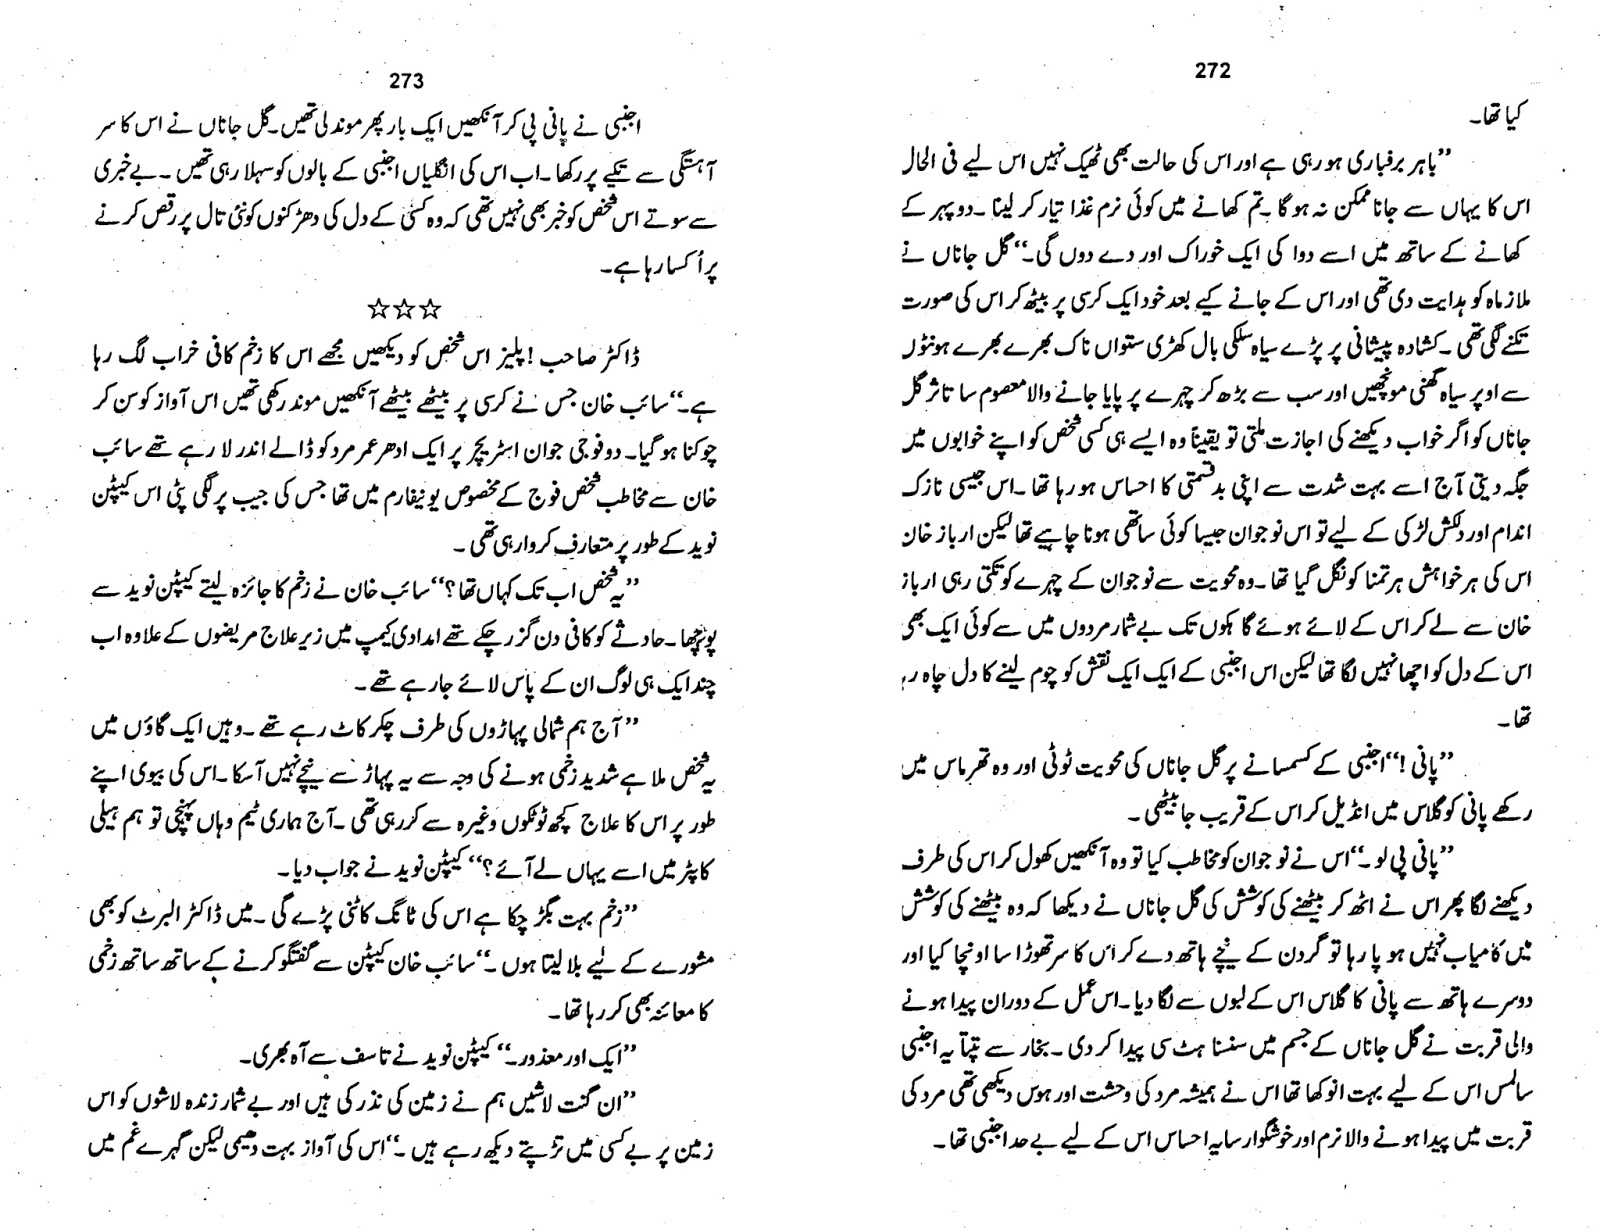 272
کیا تھا۔
”باہر برفباری ہو رہی ہے اور اس کی حالت بھی ٹھیک نہیں اس لیے فی الحال
اس کا یہاں سے جانا ممکن نہ ہو گا۔ تم کھانے میں کوئی نرم غذا تیار کر لینا۔ دوپہر کے
کھانے کے ساتھ میں اسے دوا کی ایک خوراک اور دے دوں گی۔“ گل جاناں نے
ملازماہ کو ہدایت دی تھی اور اس کے جانے کیے بعد خود ایک کرسی پر بیٹھ کر اس کی صورت
تکنے لگی تھی۔ کشادہ پیشانی پر پڑے سیاہ سلکی بال کھڑی ستواں ناک بھرے بھرے ہونٹوں
سے اوپر سیاہ گھنی مونچھیں اور سب سے بڑھ کر چہرے پر پایا جانے والا معصوم سا تاثر گل
جاناں کو اگر خواب دیکھنے کی اجازت ملتی تو یقیناً وہ ایسے ہی کسی شخص کو اپنے خوابوں میں
جگہ دیتی آج اسے بہت شدت سے اپنی بدقسمتی کا احساس ہو رہا تھا۔ اس جیسی نازک
اندام اور دلکش لڑکی کے لیے تو اس نوجوان جیسا کوئی ساتھی ہونا چاہیے تھا لیکن ارباز خان
اس کی ہر خواہش ہر تمنا کو نگل گیا تھا۔ وہ محویت سے نوجوان کے چہرے کو تکتی رہی ارباز
خان سے لے کر اس کے لائے ہوئے گاہکوں تک بے شمار مردوں میں سے کوئی ایک بھی
اس کے دل کو اچھا نہیں لگا تھا لیکن اس اجنبی کے ایک ایک نقش کو چوم لینے کا دل چاہ رہا
تھا۔
”پانی!“ اجنبی کے کسمسانے پر گل جاناں کی محویت ٹوٹی اور وہ تھرماس میں
رکھے پانی کو گلاس میں انڈیل کر اس کے قریب جا بیٹھی۔
”پانی پی لو۔“ اس نے نوجوان کو مخاطب کیا تو وہ آنکھیں کھول کر اس کی طرف
دیکھنے لگا پھر اس نے اٹھ کر بیٹھنے کی کوشش کی گل جاناں نے دیکھا کہ وہ بیٹھنے کی کوشش
میں کامیاب نہیں ہو پا رہا تو گردن کے نیچے ہاتھ دے کر اس کا سر تھوڑا سا اونچا کیا اور
دوسرے ہاتھ سے پانی کا گلاس اس کے لبوں سے لگا دیا۔ اس عمل کے دوران پیدا ہونے
والی قربت نے گل جاناں کے جسم میں سنسناہٹ سی پیدا کر دی۔ بخار سے تپتا یہ اجنبی
سا لمس اس کے لیے بہت انوکھا تھا اس نے ہمیشہ مرد کی وحشت اور ہوس دیکھی تھی مرد کی
قربت میں پیدا ہونے والا نرم اور خوشگوار سا یہ احساس اس کے لیے بے حد اجنبی تھا۔
273
اجنبی نے پانی پی کر آنکھیں ایک بار پھر موند لی تھیں۔ گل جاناں نے اس کا سر
آہستگی سے تکیے پر رکھا۔ اب اس کی انگلیاں اجنبی کے بالوں کو سہلا رہی تھیں۔ بے خبری
سے سوتے اس شخص کو خبر بھی نہیں تھی کہ وہ کسی کے دل کی دھڑکنوں کو نئی تال پر رقص کرنے
پر اُکسا رہا ہے۔
☆☆☆
ڈاکٹر صاحب! پلیز اس شخص کو دیکھیں مجھے اس کا زخم کافی خراب لگ رہا
ہے۔“ سائب خان جس نے کرسی پر بیٹھے بیٹھے آنکھیں موند رکھی تھیں اس آواز کو سن کر
چوکنا ہو گیا۔ دو فوجی جوان اسٹریچر پر ایک ادھر عمر مرد کو ڈالے اندر لا رہے تھے سائب
خان سے مخاطب شخص فوج کے مخصوص یونیفارم میں تھا جس کی جیب پر لگی پٹی اس کیپٹن
نوید کے طور پر متعارف کروا رہی تھی۔
”یہ شخص اب تک کہاں تھا؟“ سائب خان نے زخم کا جائزہ لیتے کیپٹن نوید سے
پوچھا۔ حادثے کو کافی دن گزر چکے تھے امدادی کیمپ میں زیر علاج مریضوں کے علاوہ اب
چند ایک ہی لوگ ان کے پاس لائے جا رہے تھے۔
”آج ہم شمالی پہاڑوں کی طرف چکر کاٹ رہے تھے۔ وہیں ایک گاؤں میں
یہ شخص ملا ہے شدید زخمی ہونے کی وجہ سے یہ پہاڑ سے نیچے نہیں آ سکا۔ اس کی بیوی اپنے
طور پر اس کا علاج کچھ ٹوٹکوں وغیرہ سے کر رہی تھی۔ آج ہماری ٹیم وہاں پہنچی تو ہم ہیلی
کاپٹر میں اسے یہاں لے آئے؟“ کیپٹن نوید نے جواب دیا۔
”زخم بہت بگڑ چکا ہے اس کی ٹانگ کاٹنی پڑے گی۔ میں ڈاکٹر البرٹ کو بھی
مشورے کے لیے بلا لیتا ہوں۔“ سائب خان کیپٹن سے گفتگو کرنے کے ساتھ ساتھ زخمی
کا معائنہ بھی کر رہا تھا۔
”ایک اور معذور۔“ کیپٹن نوید نے تاسف سے آہ بھری۔
”ان گنت لاشیں ہم نے زمین کی نذر کی ہیں اور بے شمار زندہ لاشوں کو اس
زمین پر بے کسی میں تڑپتے دیکھ رہے ہیں۔“ اس کی آواز بہت دھیمی لیکن گہرے غم میں